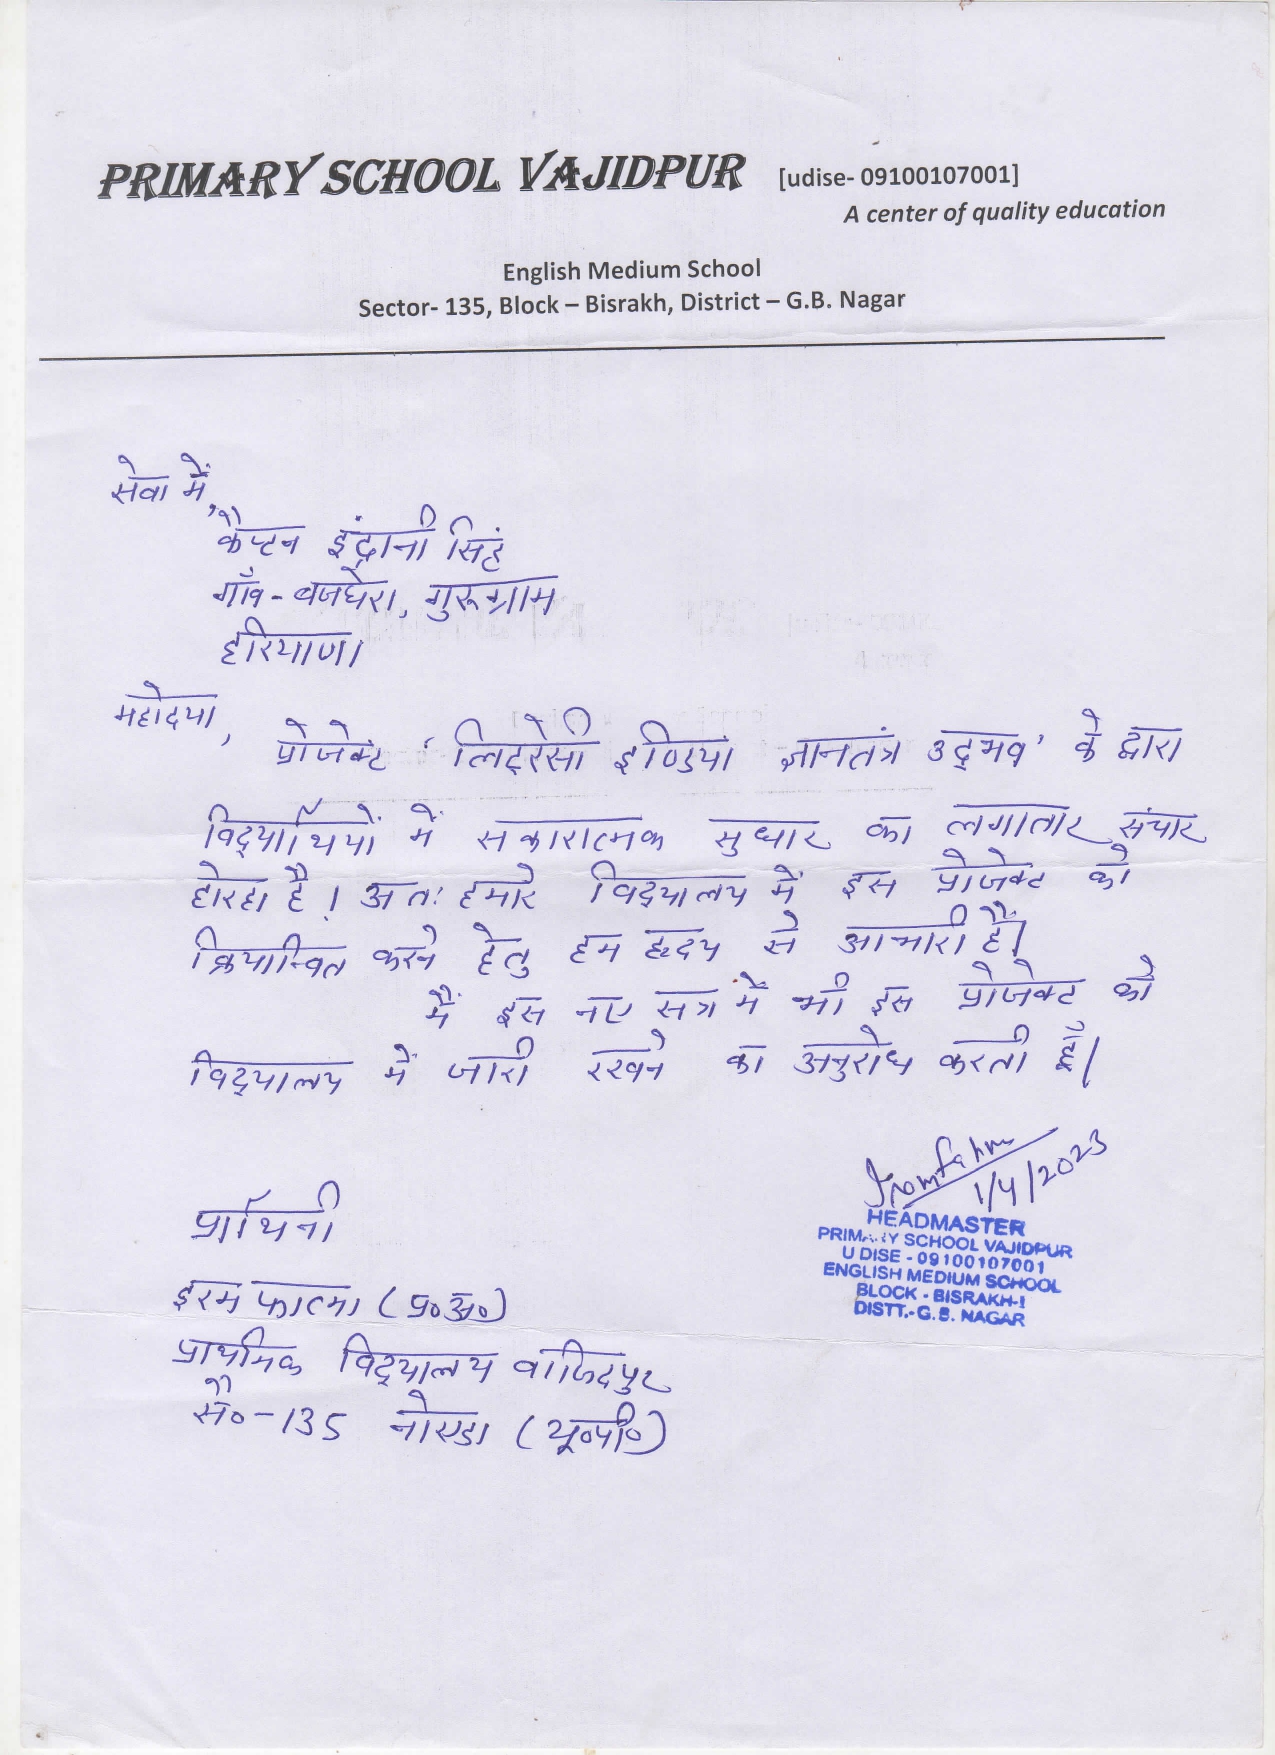 PRIMARY SCHOOL VAJIDPUR [udise- 09100107001]
A center of quality education
English Medium School
Sector- 135, Block – Bisrakh, District – G.B. Nagar
सेवा में,
कैप्टन इंद्रानी सिंह
गाँव - बजघेरा, गुरूग्राम
हरियाणा
महोदया,
प्रोजेक्ट 'लिट्रेसी इण्डिया ज्ञानतंत्र उद्भव' के द्वारा
विद्यार्थियों में सकारात्मक सुधार का लगातार संचार
हो रहा है। अतः हमारे विद्यालय में इस प्रोजेक्ट को
क्रियान्वित करने हेतु हम हृदय से आभारी हैं।
मैं इस नए सत्र में भी इस प्रोजेक्ट को
विद्यालय में जारी रखने का अनुरोध करती हूँ।
1/4/2023
HEADMASTER
PRIMARY SCHOOL VAJIDPUR
U DISE - 09100107001
ENGLISH MEDIUM SCHOOL
BLOCK - BISRAKH-I
DISTT.-G.B. NAGAR
प्रार्थिनी
इरम फात्मा (प्र०अ०)
प्राथमिक विद्यालय वाजिदपुर
सै०-135 नोएडा (यू०पी०)